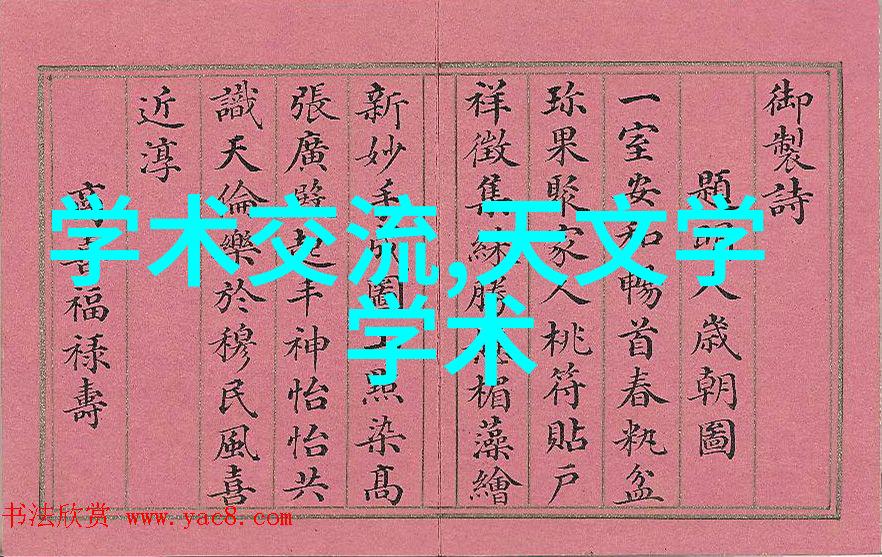 御製詩
題明人歲朝圖
一室安和暢首春籸盆
珎果聚家人桃符貼戶
祥徵集綵勝楣藻繪
新妙手圖㸃染高
張廣丰神怡怡共
識天倫樂於穆民風喜
近淳
福祿壽
学术交流,天文学
学术
书法欣赏 www.yac8.com